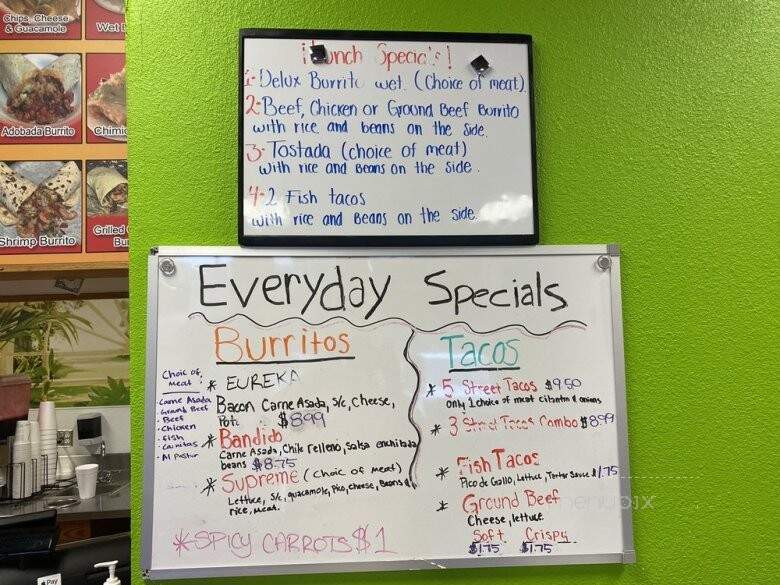 Chips, Cheese
& Guacamole
Wet
Adobada Burrito
Shrimp Burrito
Grilled
¡Lunch Specials!
1- Delux Burrito wet. (Choice of meat).
2- Beef, Chicken or Ground Beef Burrito
with rice and beans on the side.
3- Tostada (choice of meat)
with rice and Beans on the side.
4- 2 Fish tacos
with rice and Beans on the side.
Everyday Specials
Burritos
Choic of
meat:
-Carne Asada
-Ground Beef
-Beef
-Chicken
-Fish
-Carnitas
-Al Pastor
* EUREKA
Bacon Carne Asada, s/c, cheese,
Pot. $8.99
* Bandido
Carne Asada, Chile relleno, Salsa enchilada
beans $8.75
* Supreme (choic of meat)
Lettuce, s/c, guacamole, Pico, cheese, Beans &
rice, meat.
*SPICY CARROTS $1
Tacos
* 5 Street Tacos $9.50
Only 1 choice of meat cilantro & onions
* 3 Street Tacos Combo $8.99
* Fish Tacos
Pico de Gallo, Lettuce, Tarter Sauce $1.75
* Ground Beef
Cheese, lettuce.
Soft Crispy
$1.75 $1.75
Pay